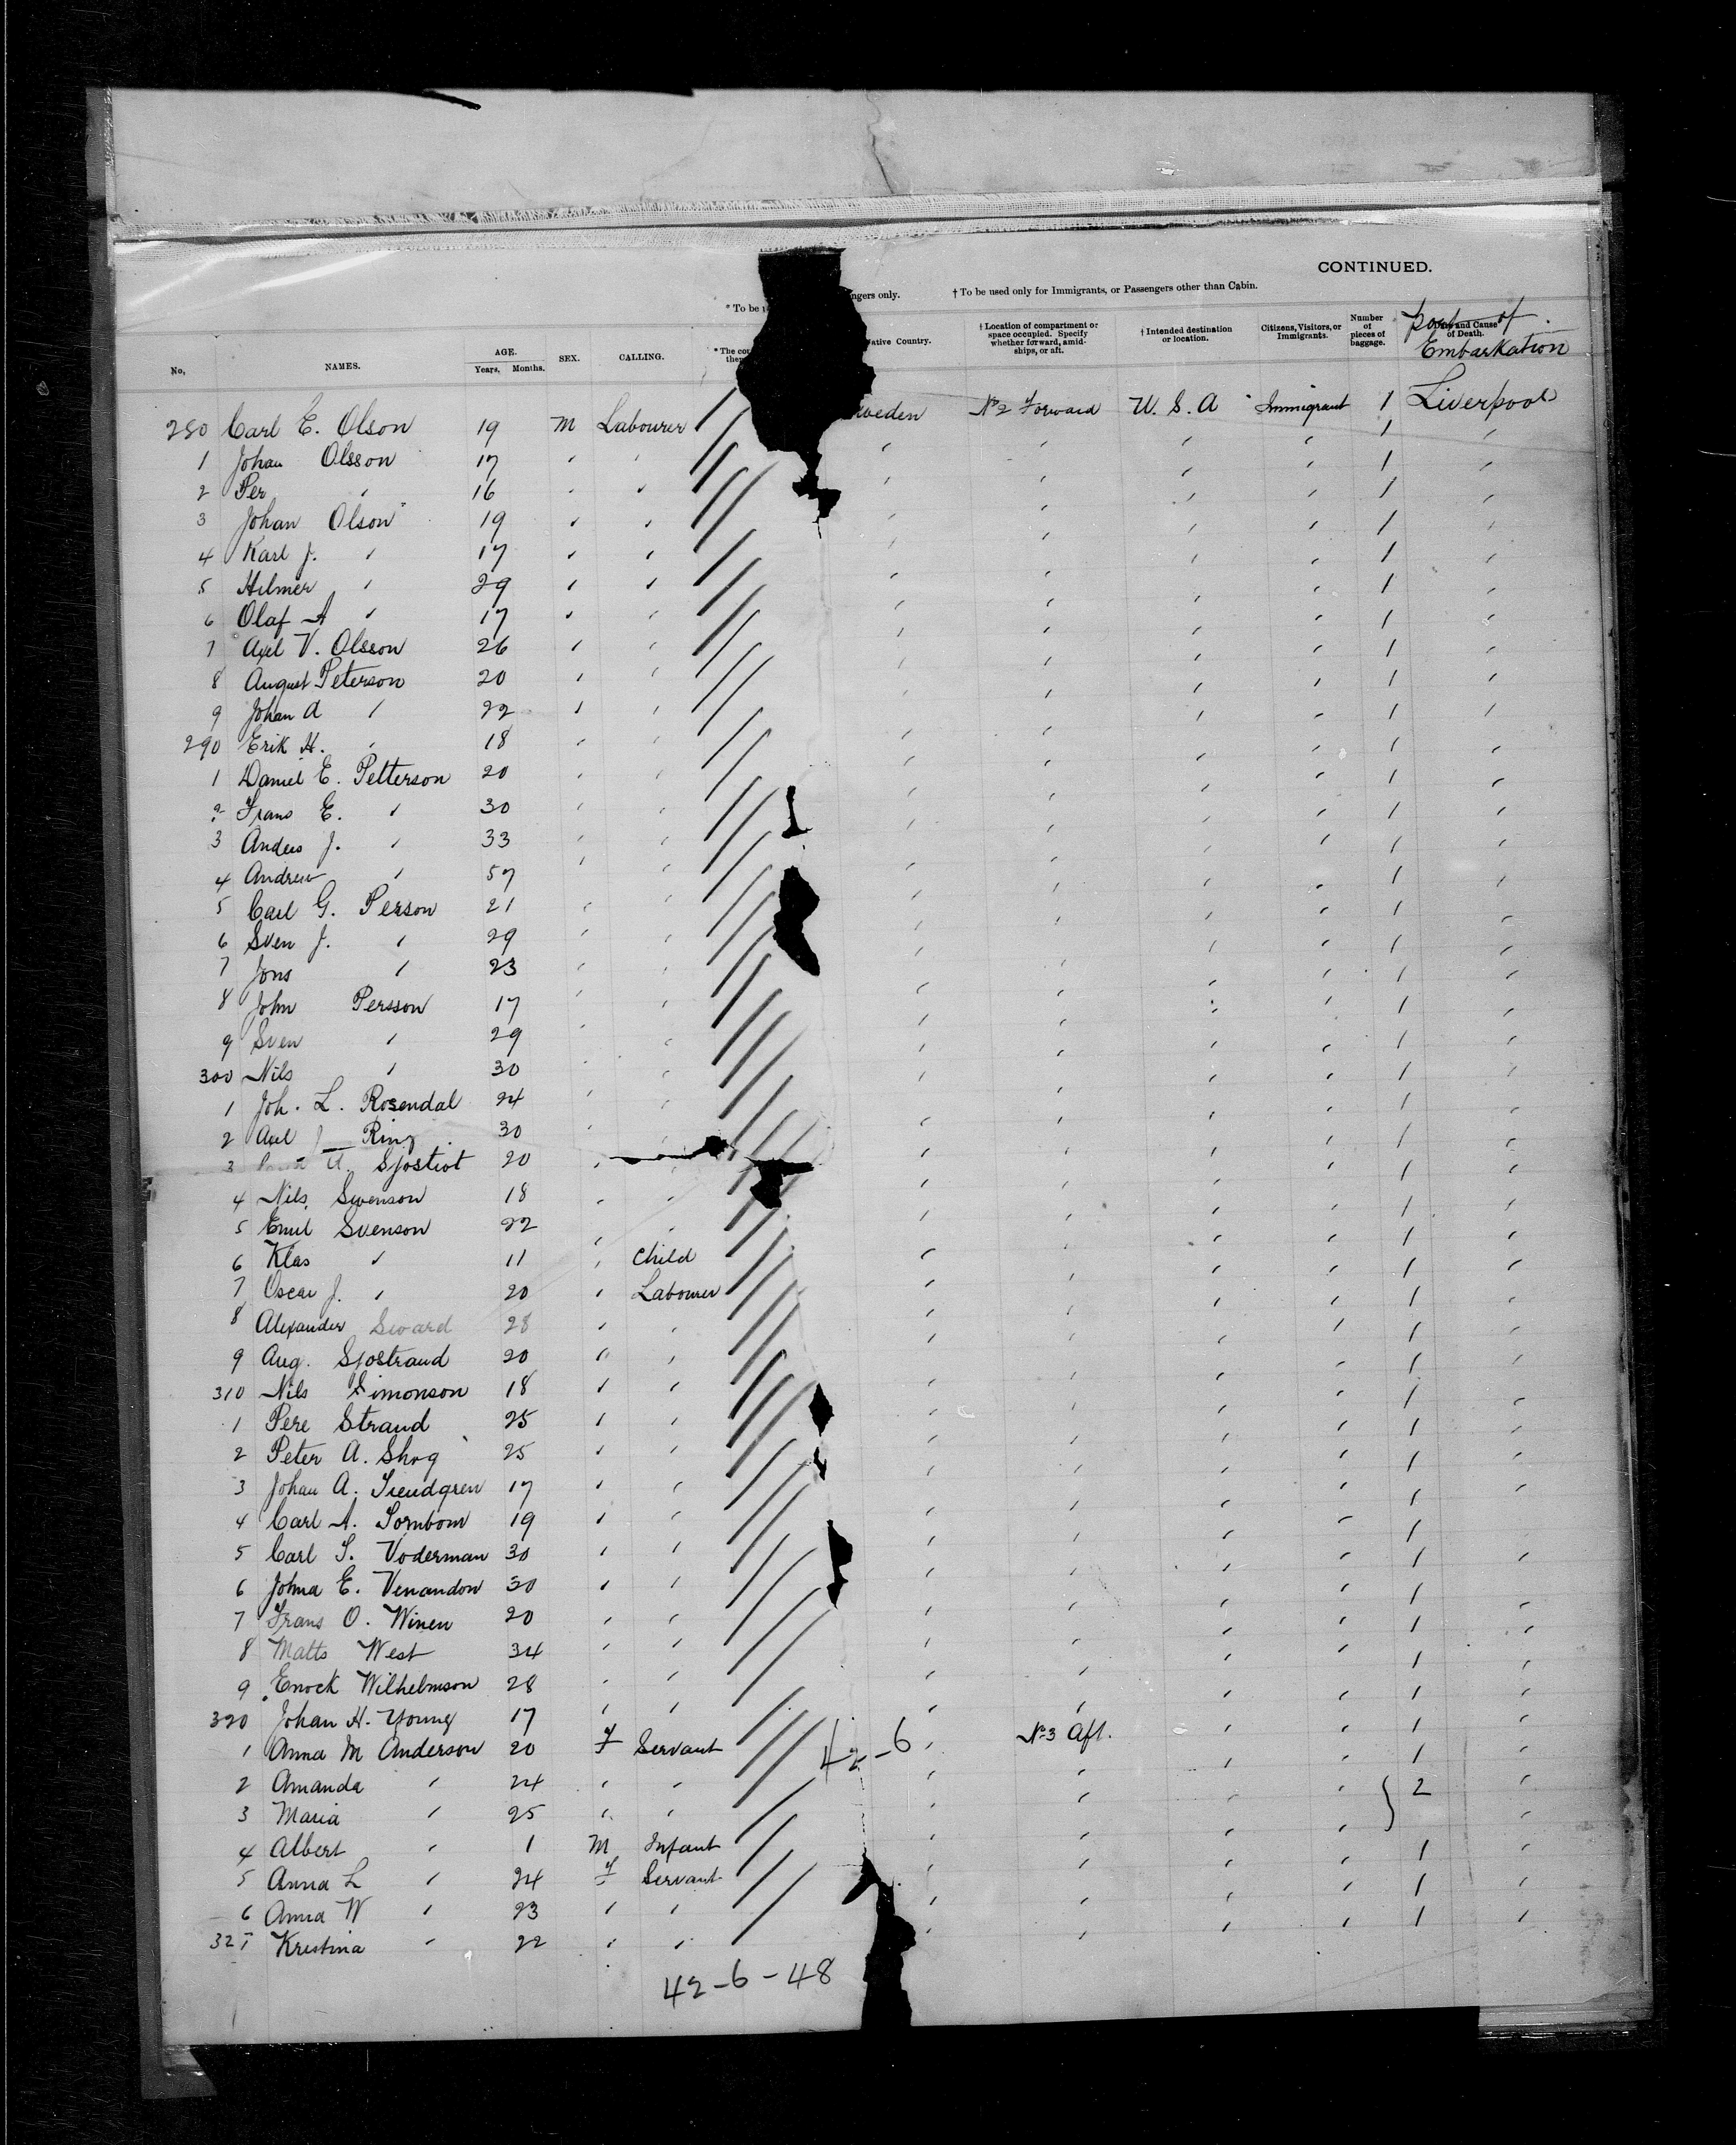 CONTINUED.
* To be ngers only. † To be used only for Immigrants, or Passengers other than Cabin.
No. NAMES. AGE. Years. Months. SEX. CALLING. * The cou ther ative Country. † Location of compartment or space occupied. Specify whether forward, amid-ships, or aft. † Intended destination or location. Citizens, Visitors, or Immigrants. Number of pieces of baggage. and Cause of Death. port of Embarkation
280 Carl E. Olson 19 M Labourer weden No 2 Forward U.S.A Immigrant 1 Liverpool
1 Johan Olsson 17 " " " " " " 1 "
2 Per " 16 " " " " " " 1 "
3 Johan Olson 19 " " " " " " 1 "
4 Karl J. " 17 " " " " " " 1 "
5 Hilmer " 29 " " " " " " 1 "
6 Olaf A " 17 " " " " " " 1 "
7 Axel V. Olsson 26 " " " " " " 1 "
8 August Peterson 20 " " " " " " 1 "
9 Johan A " 22 " " " " " " 1 "
290 Erik H. " 18 " " " " " " 1 "
1 Daniel E. Petterson 20 " " " " " " 1 "
2 Frans E. " 30 " " " " " " 1 "
3 Anders J. " 33 " " " " " " 1 "
4 Andrew " 57 " " " " " " 1 "
5 Carl G. Person 21 " " " " " " 1 "
6 Sven J. " 29 " " " " " " 1 "
7 Jons " 23 " " " " " " 1 "
8 John Persson 17 " " " " " " 1 "
9 Sven " 29 " " " " " " 1 "
300 Nils " 30 " " " " " " 1 "
1 Joh. L. Rosendal 24 " " " " " " 1 "
2 Axel J Ring 30 " " " " " " 1 "
3 A. Sjostrot 20 " " " " " " 1 "
4 Nils Swenson 18 " " " " " " 1 "
5 Emil Svenson 22 " " " " " " 1 "
6 Klas " 11 " Child " " " " 1 "
7 Oscar J. " 20 " Labourer " " " " 1 "
8 Alexander Sward 28 " " " " " " 1 "
9 Aug. Sjostrand 20 " " " " " " 1 "
310 Nils Simonson 18 " " " " " " 1 "
1 Pere Strand 25 " " " " " " 1 "
2 Peter A. Shog 25 " " " " " " 1 "
3 Johan A. 17 " " " " " " 1 "
4 Carl A. Tornbom 19 " " " " " " 1 "
5 Carl Voderman 30 " " " " " " 1 "
6 Johna E. Venandon 30 " " " " " " 1 "
7 Frans O. Winen 20 " " " " " " 1 "
8 Matts West 34 " " " " " " 1 "
9 Enock Wilhelmson 28 " " " " " " 1 "
320 Johan H. Young 17 " " " " " " 1 "
1 Anna M Anderson 20 F Servant 42-6 " No 3 Aft. " " 1 "
2 Amanda " 24 " " " " " " 1 "
3 Maria " 25 " " " " " " } 2 "
4 Albert " 1 M Infant " " " " "
5 Anna L " 24 F Servant " " " " 1 "
6 Anna W " 23 " " " " " " 1 "
327 Kristina " 22 " " " " " " 1 "
42-6-48